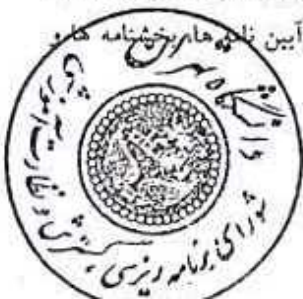 آیین نامه ها، بخشنامه ها و
دانشگاه تهران
شورای برنامه ریزی، گسترش و نظارت